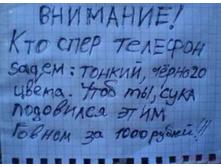 ВНИМАНИЕ!
Кто спер телефон
sagem: тонкий, чёрного
цвета. Чтоб ты, сука
подавился этим
Говном за 1000 рублей!!!